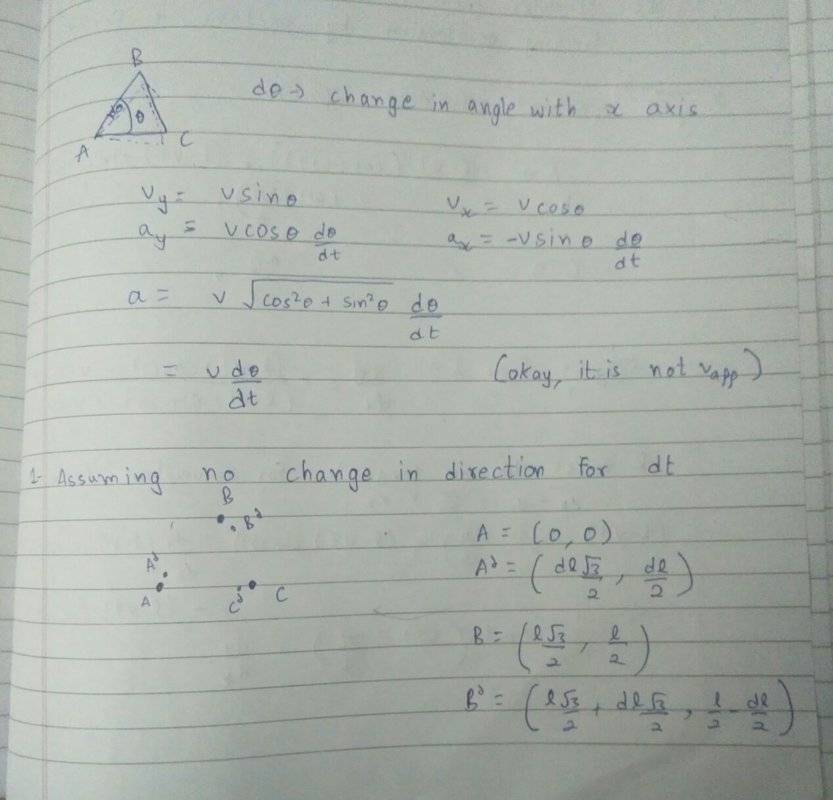 B
dθ → change in angle with x axis
θ
A C
v_y = v sinθ v_x = v cosθ
a_y = v cosθ dθ/dt a_x = -v sinθ dθ/dt
a = v √(cos²θ + sin²θ) dθ/dt
= v dθ/dt (okay, it is not v_app)
1- Assuming no change in direction for dt
B
B' A = (0, 0)
A' A' = (dl√3/2, dl/2)
A C' C
B = (l√3/2, l/2)
B' = (l√3/2 + dl√3/2, l/2 - dl/2)